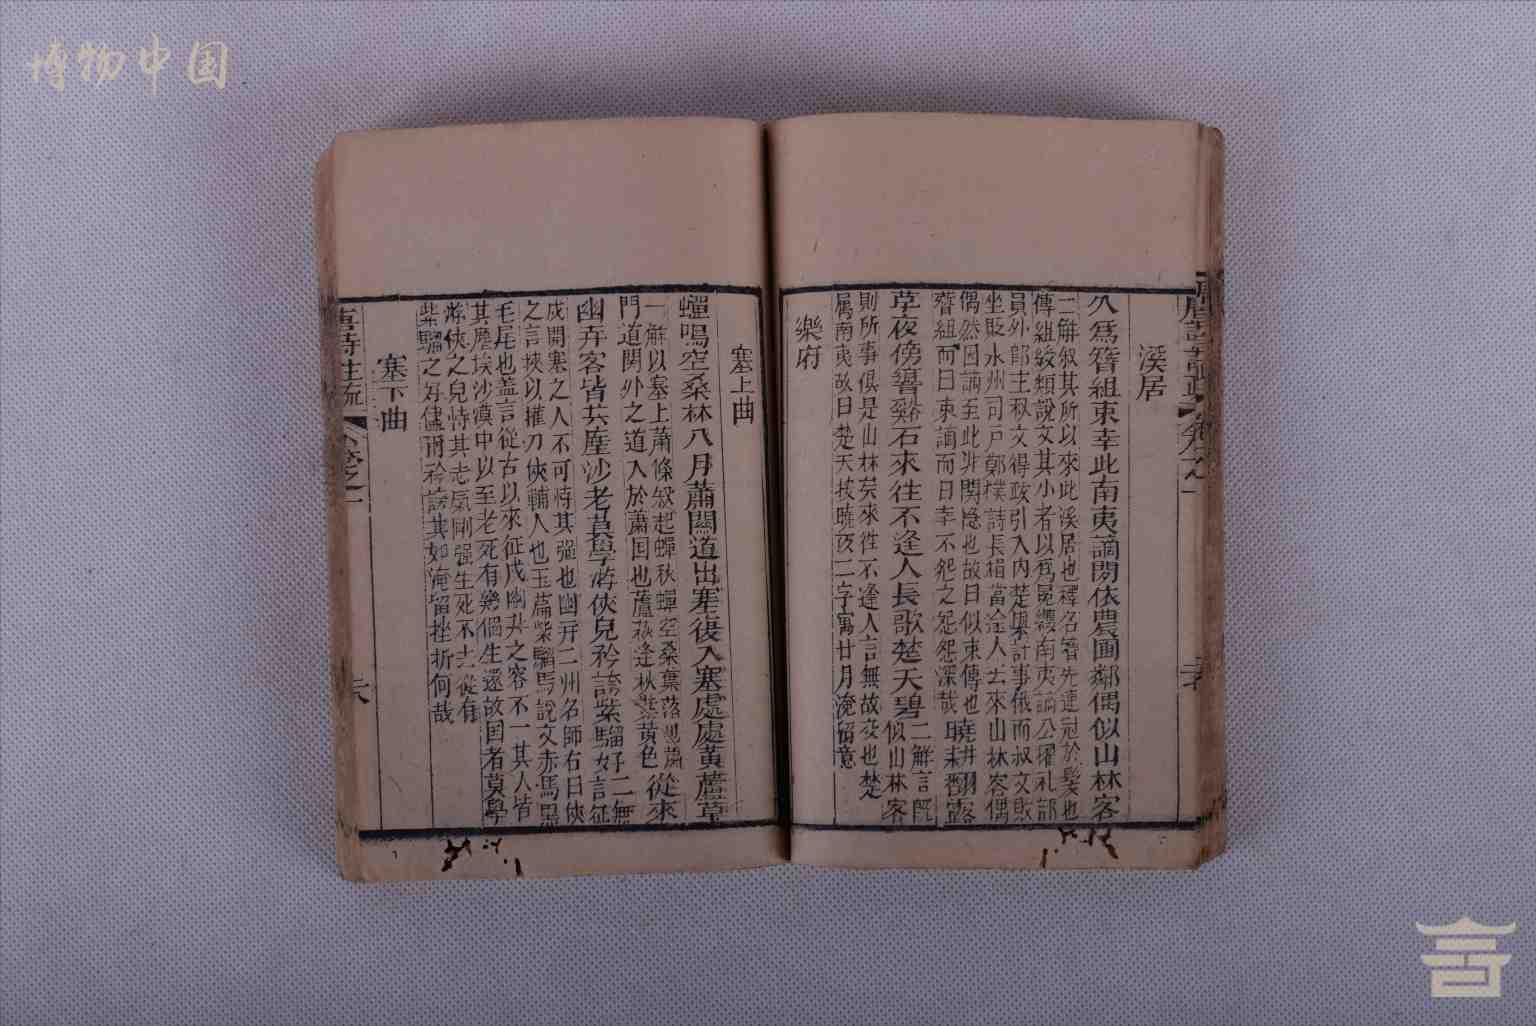 博物中国
溪居
久為簪組束幸此南夷謫閒依農圃鄰偶似山林客
二解叙其所以來此溪居也釋名簪先連冠於髮也
傳組綬類說文其小者以為冕纓南夷謫公擢礼部
員外郎主叔文得政引入内楚與計事俄而叔文敗
坐貶永州司戶鄭樸詩長捐當途人去來山林客偶
偶然因謫至此非関隐也故曰似束傳也
簪組而曰束謫而曰幸不怨之怨怨深哉
曉耕翻露
草夜傍響谿石來往不逢人長歌楚天碧
二解言既似山林客
則所事俱是山林矣來徃不逢人言無故交也楚
属南夷故曰楚天按曉夜二字寓廿月淹留意
樂府
塞上曲
蟬鳴空桑林八月蕭關道出塞復入塞處處黃蘆草
一解以塞上蕭條叙起蟬秋蟬空桑葉落
門道関外之道入於蕭回也蘆荻逢秋髮黄色
從來
幽并客皆共塵沙老莫學游俠兒矜誇紫騮好
二言征
成開塞之人不可恃其强也幽并二州名師右曰俠
之言挾以權刀俠輔人也玉篇紫騮馬說文赤馬黑
毛尾也盖言從古以來征戍幽并之客不一其人皆
其塵埃沙漠中以至老死有幾個生還故国者莫學
游俠之兒恃其志氣剛强生死不去從有
紫騮之好儘爾矜誇其如淹留挫折何哉
塞下曲
唐詩注疏
卷之一